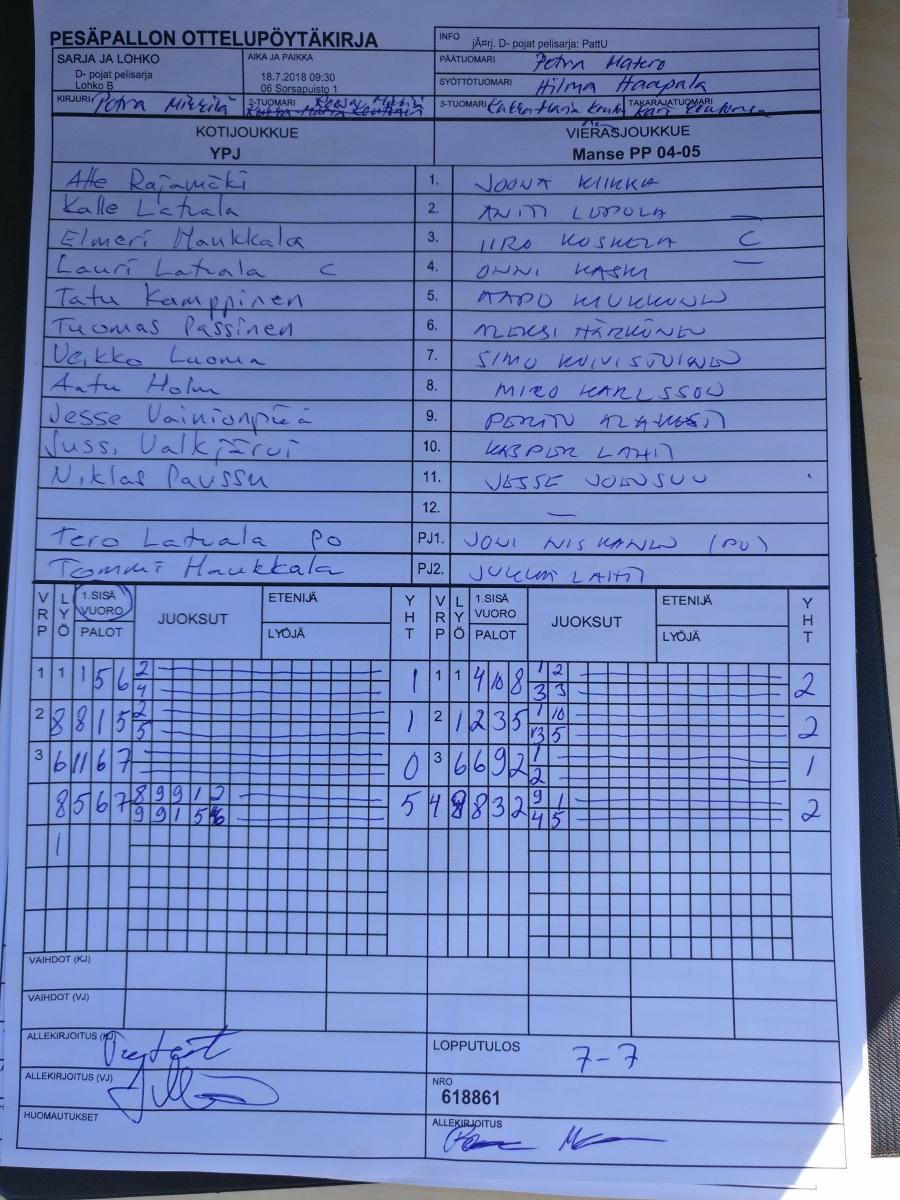 PESÄPALLON OTTELUPÖYTÄKIRJA
INFO jÃ¤rj. D- pojat pelisarja: PattU
SARJA JA LOHKO
D- pojat pelisarja
Lohko B
AIKA JA PAIKKA
18.7.2018 09:30
06 Sorsapuisto 1
PÄÄTUOMARI Petra Matero
SYÖTTÖTUOMARI Hilma Haapala
KIRJURI Petra Mikkilä
2-TUOMARI
3-TUOMARI
TAKARAJATUOMARI
KOTIJOUKKUE
YPJ
VIERASJOUKKUE
Manse PP 04-05
Atte Rajamäki 1. JOONA KIIKKA
Kalle Latvala 2. ANTTI LUPULA
Elmeri Haukkala 3. IIRO KOSKELA C
Lauri Latvala C 4. ONNI KASKI
Tatu Kamppinen 5. AAPO
Tuomas Passinen 6. ALEKSI HÄRKÖNEN
Veikko Luoma 7. SIMO KOIVISTOINEN
Aatu Holm 8. MIRO KARLSSON
Jesse Vainionpää 9. PERTTU
Jussi Valkjärvi 10. KASPER LAHTI
Niklas Paussu 11. JESSE JOENSUU
12. —
Tero Latvala PO PJ1. JONI NISKANEN (PO)
Tommi Haukkala PJ2. JUKKA LAHTI
VRP LYÖ 1.SISÄ VUORO PALOT JUOKSUT ETENIJÄ LYÖJÄ YHT VRP LYÖ 1.SISÄ VUORO PALOT JUOKSUT ETENIJÄ LYÖJÄ YHT
1 1 1 5 6 2 1 1 1 4 10 8 1 2 2
4 3 3
2 8 8 1 5 2 1 2 1 2 3 5 1 10 2
5 5
3 6 11 6 7 0 3 6 6 9 2 1 1
2
8 5 6 7 8 9 9 1 2 5 4 8 8 3 2 9 1 2
9 9 1 5 4 5
1
VAIHDOT (KJ)
VAIHDOT (VJ)
ALLEKIRJOITUS (KJ)
LOPPUTULOS 7-7
ALLEKIRJOITUS (VJ)
NRO
618861
HUOMAUTUKSET
ALLEKIRJOITUS